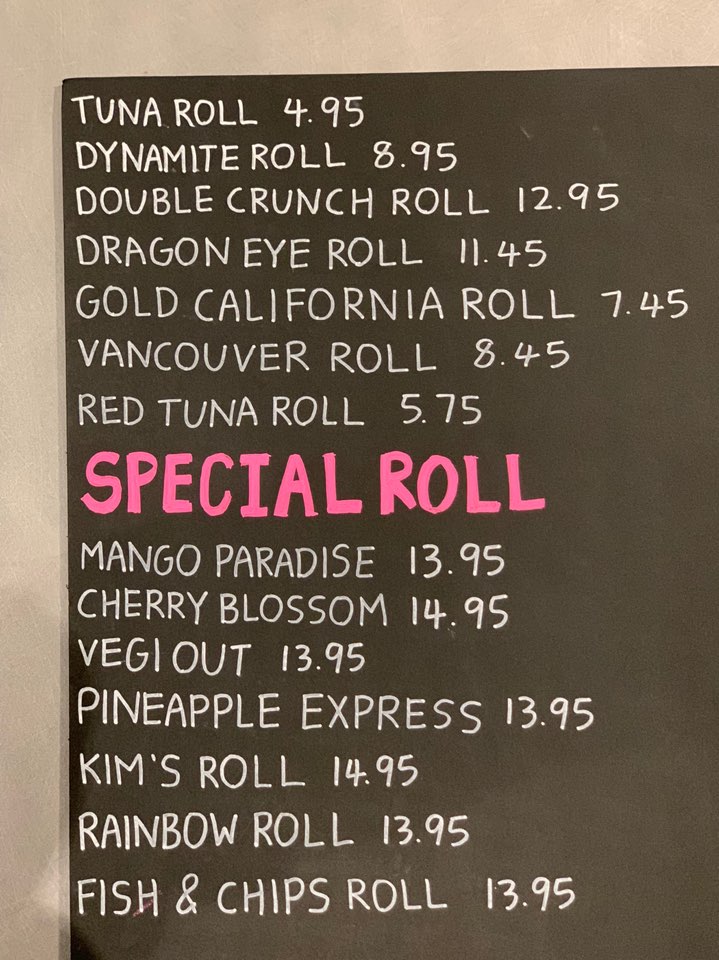 TUNA ROLL 4.95
DYNAMITE ROLL 8.95
DOUBLE CRUNCH ROLL 12.95
DRAGON EYE ROLL 11.45
GOLD CALIFORNIA ROLL 7.45
VANCOUVER ROLL 8.45
RED TUNA ROLL 5.75
SPECIAL ROLL
MANGO PARADISE 13.95
CHERRY BLOSSOM 14.95
VEGI OUT 13.95
PINEAPPLE EXPRESS 13.95
KIM'S ROLL 14.95
RAINBOW ROLL 13.95
FISH & CHIPS ROLL 13.95